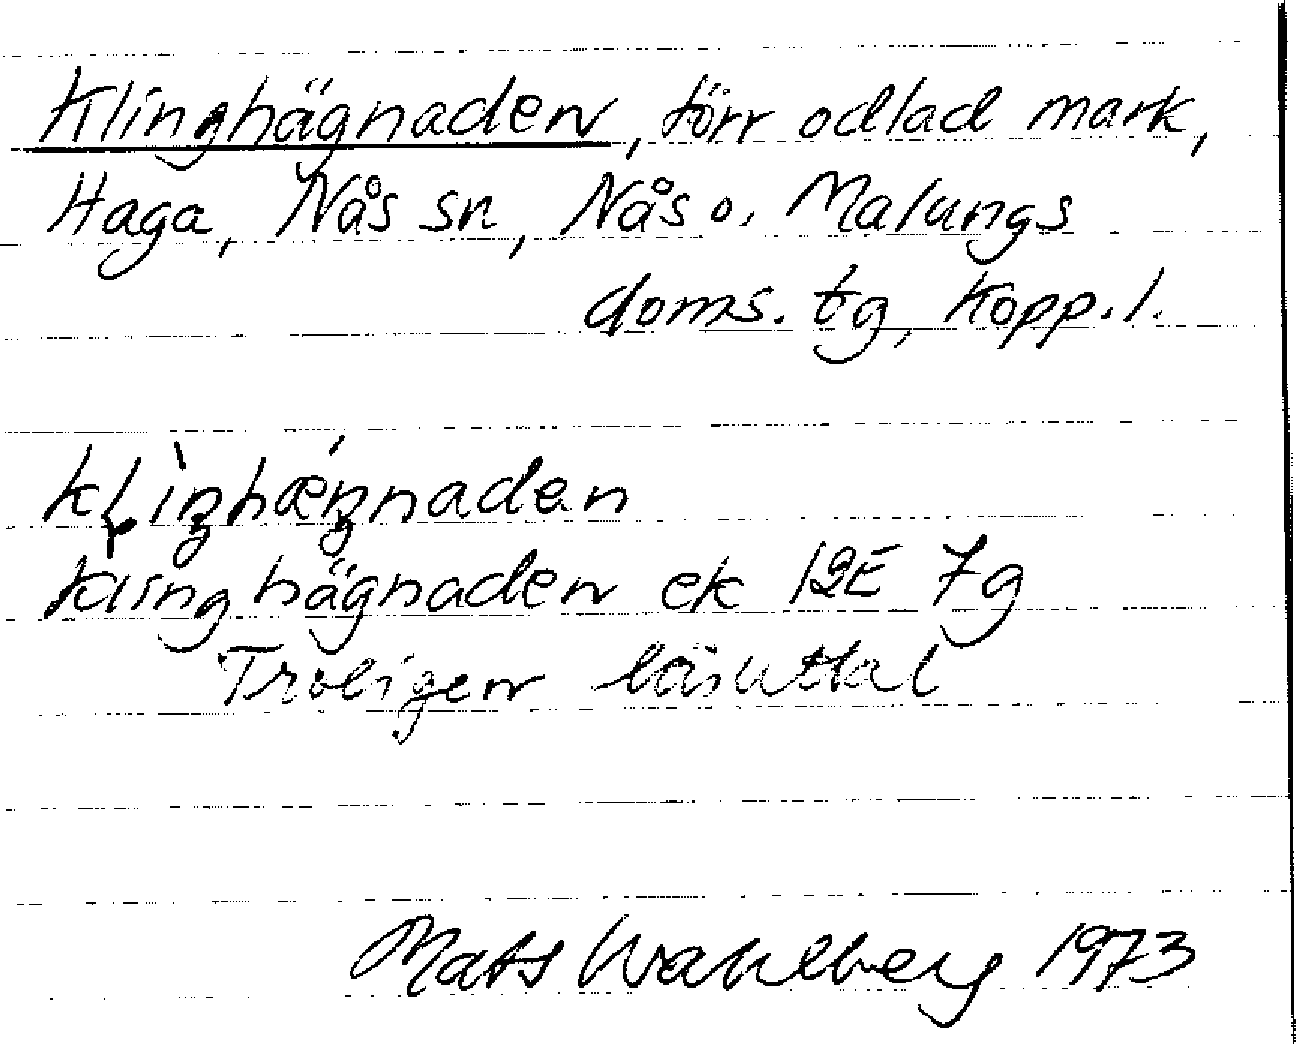 Klinghägnaden, torr odlad mark,
Haga, Nås sn, Nås o. Malungs
doms. tg, Kopp. l.
kḷìŋhǽŋnadan
Klinghägnaden ek 12E 7g
Troligen läsuttal
Mats Wahlberg 1973